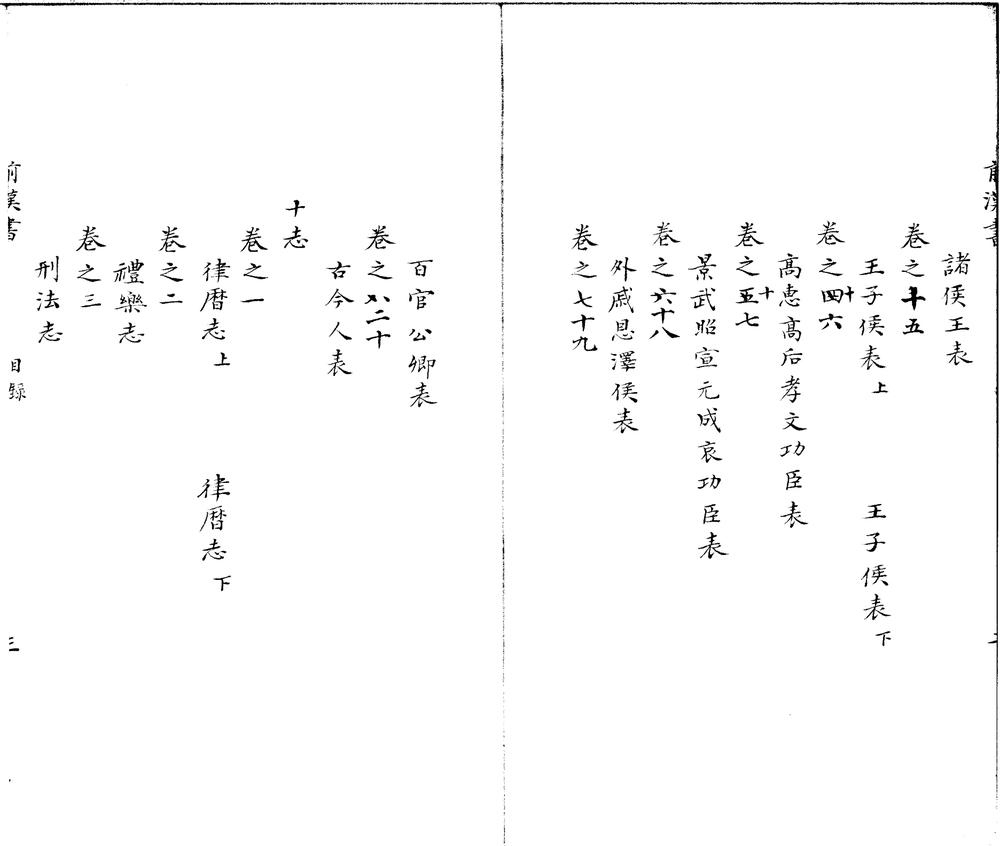 前漢書
諸侯王表
卷之十五
王子侯表上 王子侯表下
卷之四十六
髙惠髙后孝文功臣表
卷之五十七
景武昭宣元成哀功臣表
卷之六十八
外戚恩澤侯表
卷之七十九
百官公卿表
卷之八二十
古今人表
十志
卷之一
律暦志上 律暦志下
卷之二
禮樂志
卷之三
刑法志
前漢書 目録 三